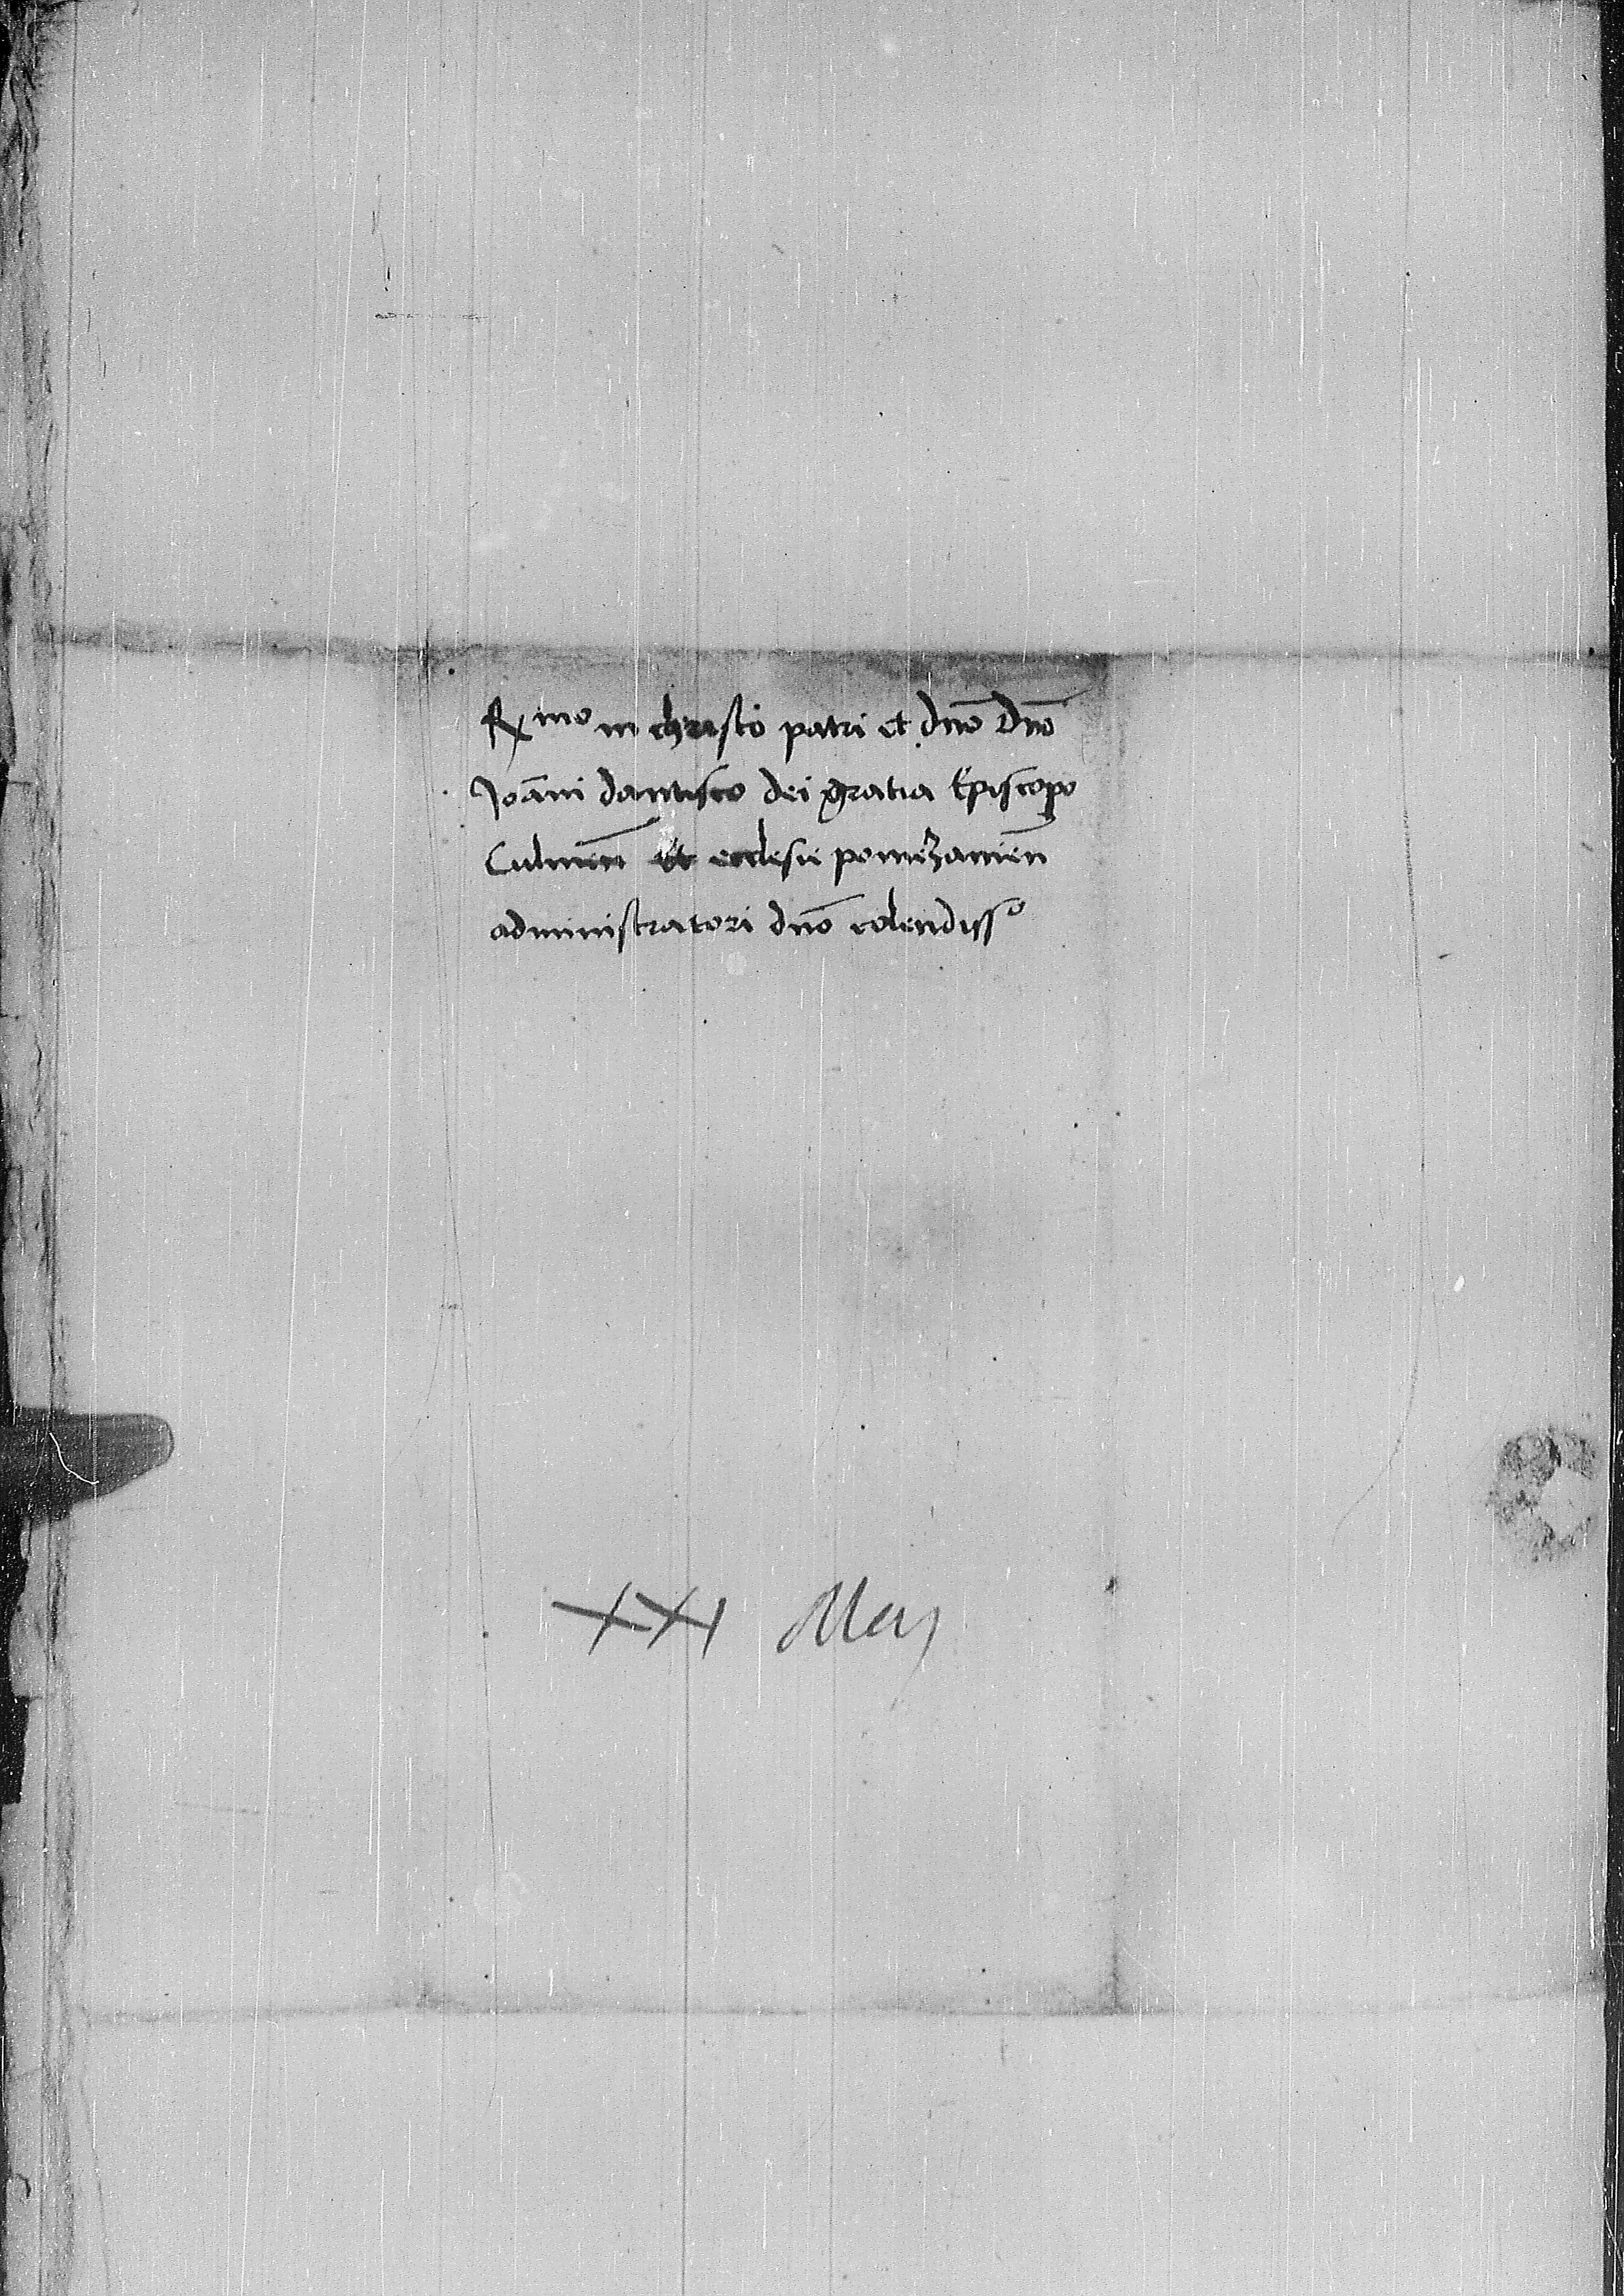 Rmo in christo patri et dno Dno
Joāni dantisco dei gratia Episcopo
Culmeñ et ecclesie pomezanieñ
administratori dno colendisso
XXI Maij